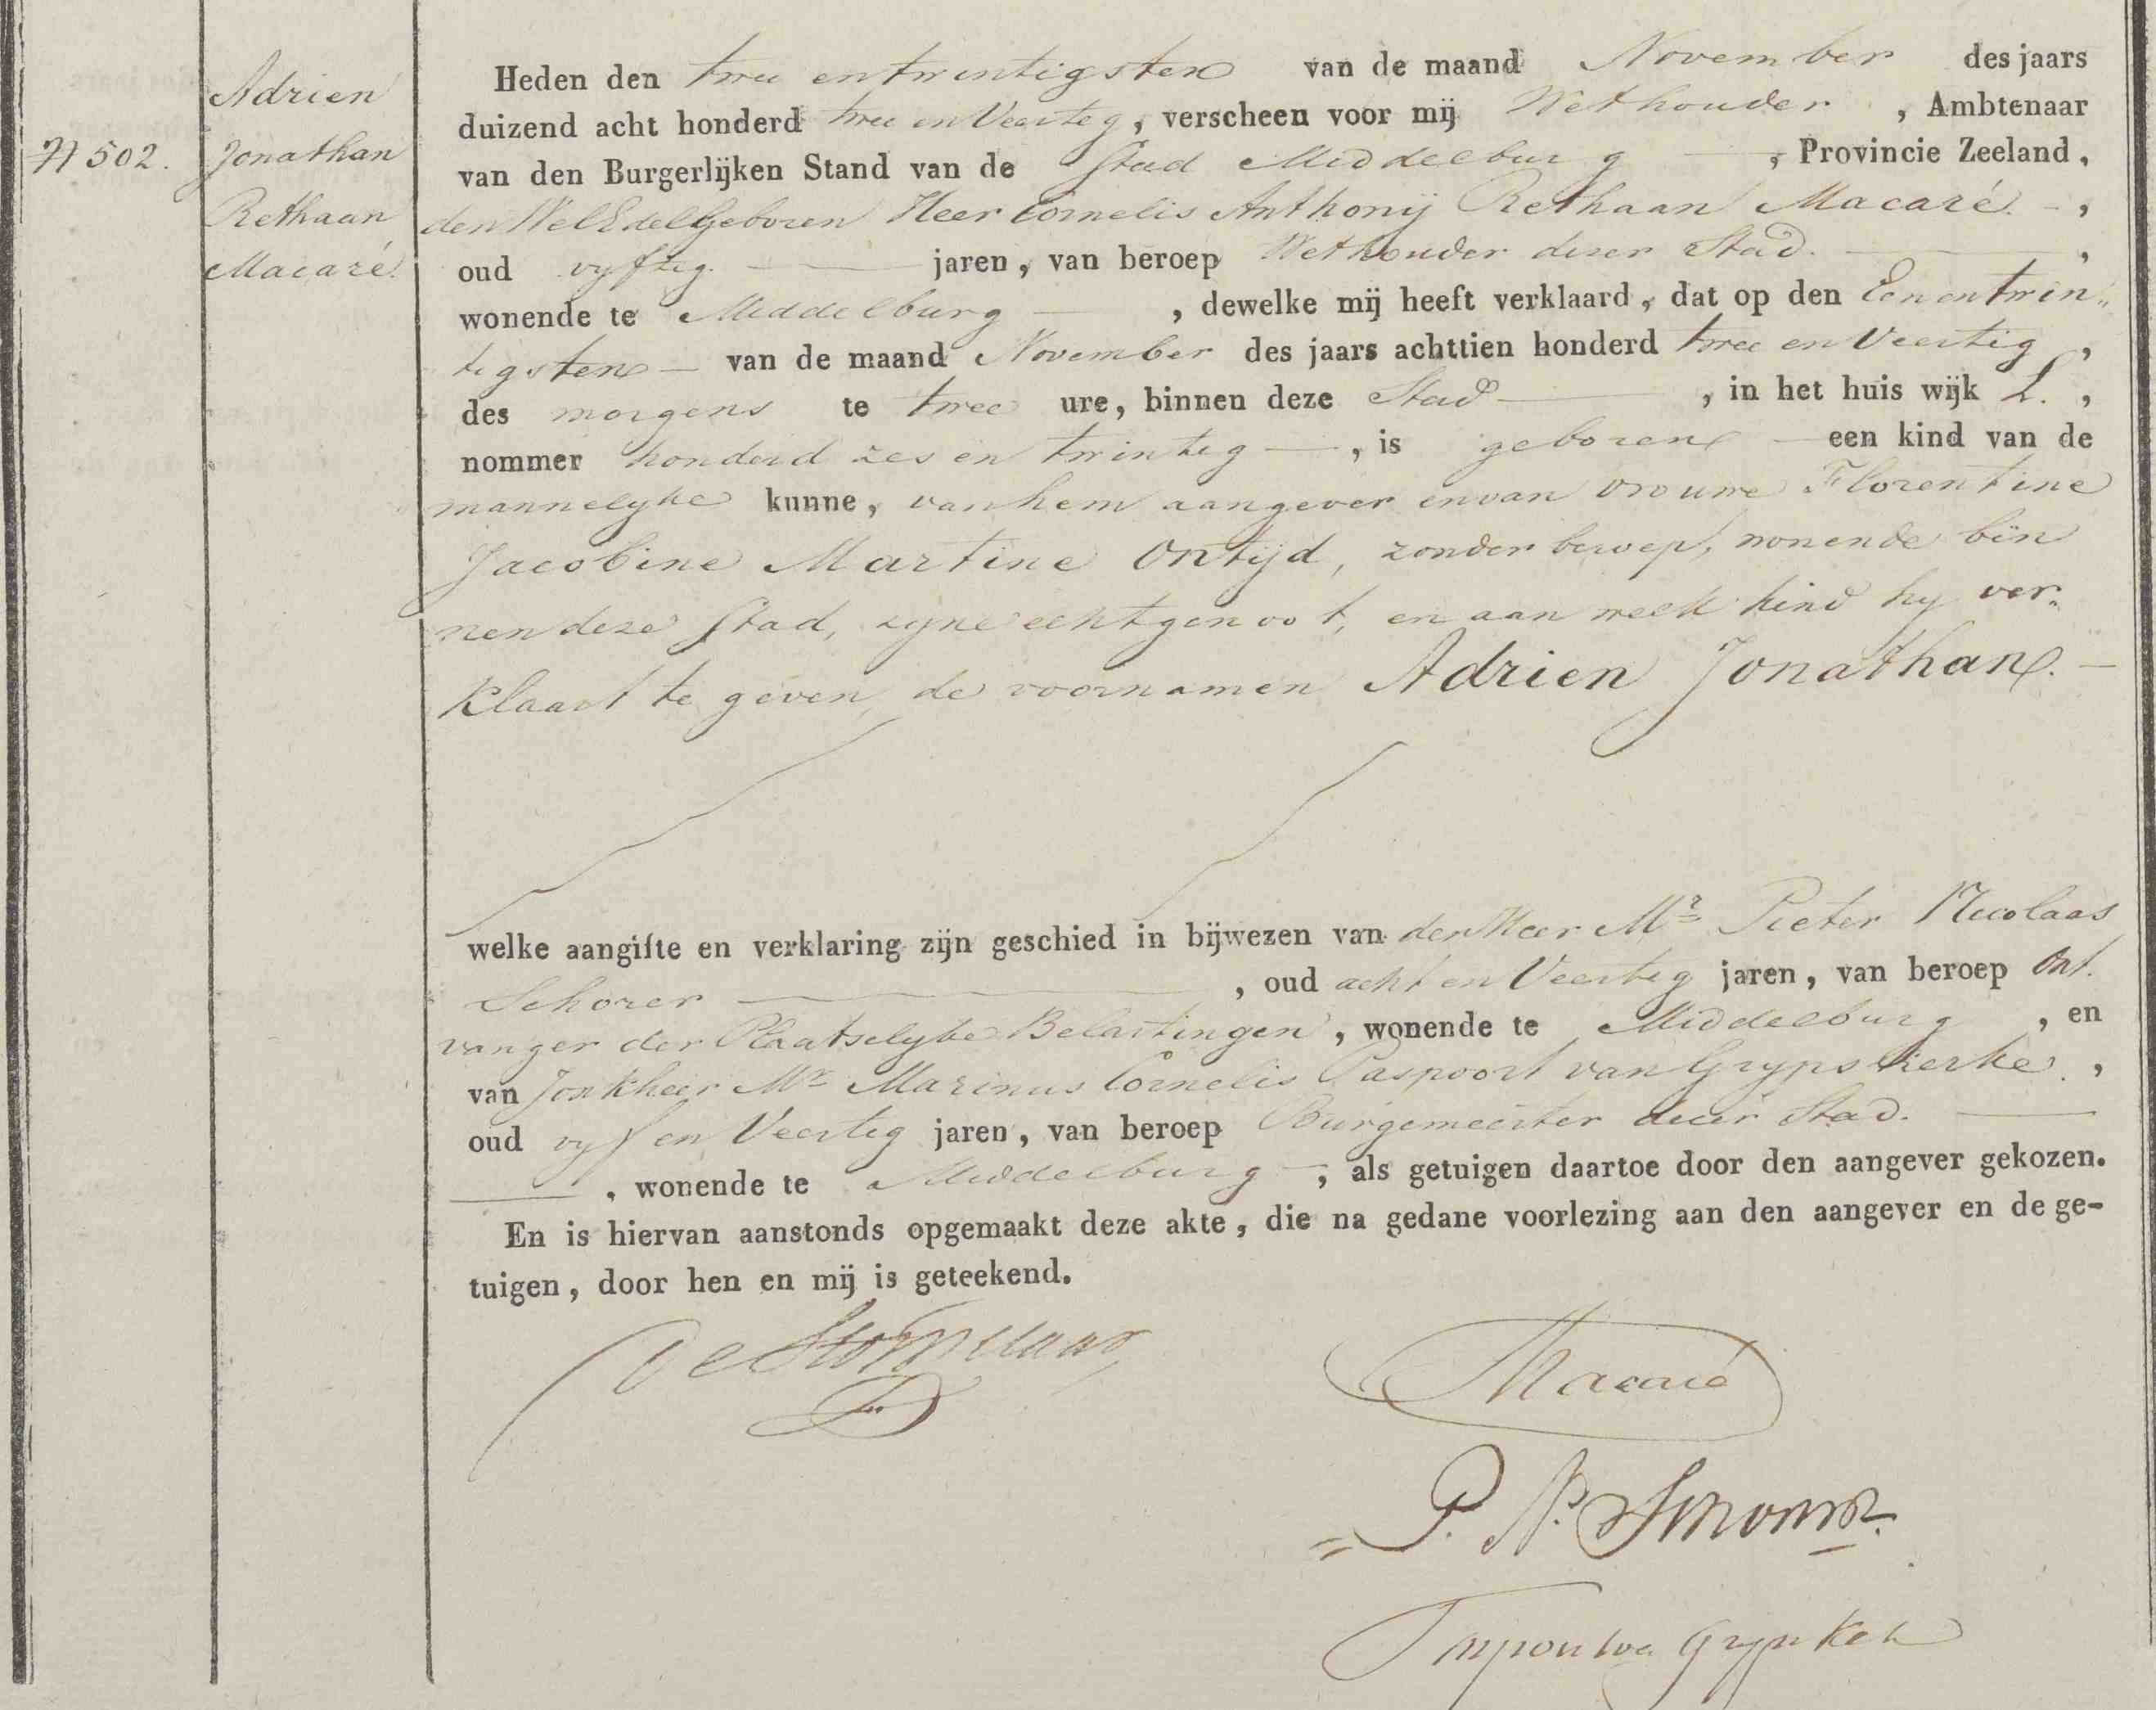 N 502.
Adrien
Jonathan
Rethaan
Macaré.
Heden den twee en twintigsten van de maand November des jaars
duizend acht honderd twee en Veertig, verscheen voor mij Wethouder, Ambtenaar
van den Burgerlijken Stand van de Stad Middelburg, Provincie Zeeland,
den WelEdelGeboren Heer Cornelis Anthonij Rethaan Macaré.,
oud vyftig jaren, van beroep Wethouder dezer Stad.,
wonende te Middelburg, dewelke mij heeft verklaard, dat op den Een en twin„
tigsten van de maand November des jaars achttien honderd twee en Veertig,
des morgens te twee ure, binnen deze Stad, in het huis wijk L.,
nommer honderd zes en twintig, is geboren een kind van de
mannelyke kunne, van hem aangever en van vrouwe Florentine
Jacobine Martine Ontijd, zonder beroep, wonende bin
nen deze Stad, zyne echtgenoot, en aan welk kind hy ver„
klaart te geven de voornamen Adrien Jonathan.
welke aangifte en verklaring zijn geschied in bijwezen van den Heer Mr Pieter Nicolaas
Schorer, oud acht en Veertig jaren, van beroep Ont.
vanger der Plaatselyke Belastingen, wonende te Middelburg, en
van Jonkheer Mr Marinus Cornelis Paspoort van Grypskerke.,
oud vyf en Veertig jaren, van beroep Burgemeester dezer Stad.
, wonende te Middelburg, als getuigen daartoe door den aangever gekozen.
En is hiervan aanstonds opgemaakt deze akte, die na gedane voorlezing aan den aangever en de ge-
tuigen, door hen en mij is geteekend.
Macaré
P. N. Schorer.